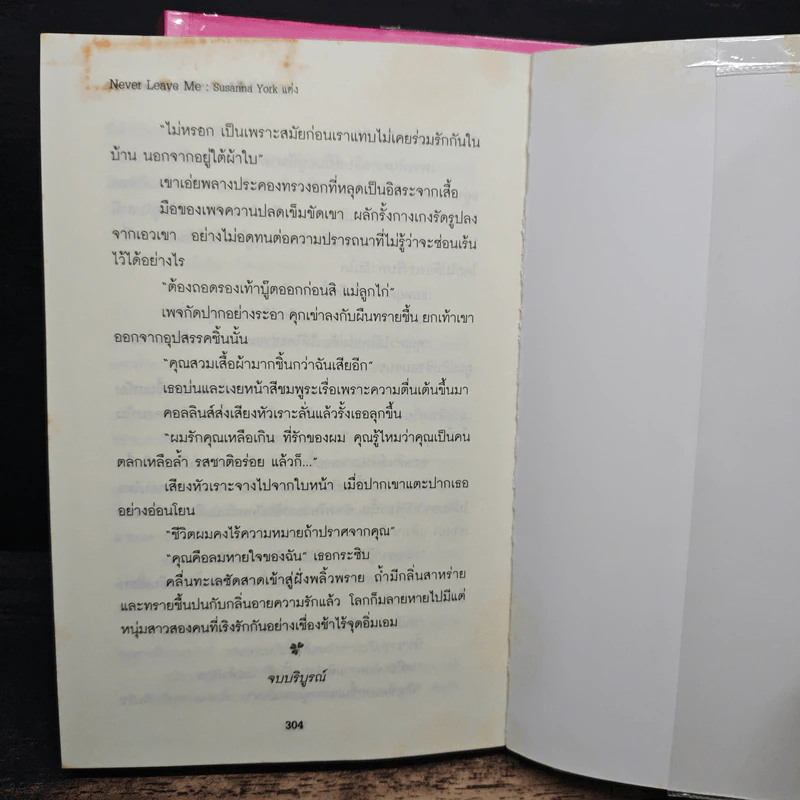 Never Leave Me : Susanna York แต่ง
"ไม่หรอก เป็นเพราะสมัยก่อนเราแทบไม่เคยร่วมรักกันใน
บ้าน นอกจากอยู่ใต้ผ้าใบ"
เขาเอ่ยพลางประคองทรวงอกที่หลุดเป็นอิสระจากเสื้อ
มือของเพจควานปลดเข็มขัดเขา ผลักรั้งกางเกงรัดรูปลง
จากเอวเขา อย่างไม่อดทนต่อความปรารถนาที่ไม่รู้ว่าจะซ่อนเร้น
ไว้ได้อย่างไร
"ต้องถอดรองเท้าบู๊ตออกก่อนสิ แม่ลูกไก่"
เพจกัดปากอย่างระอา คุกเข่าลงกับผืนทรายชื้น ยกเท้าเขา
ออกจากอุปสรรคชิ้นนั้น
"คุณสวมเสื้อผ้ามากชิ้นกว่าฉันเสียอีก"
เธอบ่นและเงยหน้าสีชมพูระเรื่อเพราะความตื่นเต้นขึ้นมา
คอลลินส์ส่งเสียงหัวเราะลั่นแล้วรั้งเธอลุกขึ้น
"ผมรักคุณเหลือเกิน ที่รักของผม คุณรู้ไหมว่าคุณเป็นคน
ตลกเหลือล้ำ รสชาติอร่อย แล้วก็..."
เสียงหัวเราะจางไปจากใบหน้า เมื่อปากเขาแตะปากเธอ
อย่างอ่อนโยน
"ชีวิตผมคงไร้ความหมายถ้าปราศจากคุณ"
"คุณคือลมหายใจของฉัน" เธอกระซิบ
คลื่นทะเลซัดสาดเข้าสู่ฝั่งพลิ้วพราย ถ้ำมีกลิ่นสาหร่าย
และทรายชื้นปนกับกลิ่นอายความรักแล้ว โลกก็มลายหายไปมีแต่
หนุ่มสาวสองคนที่เริงรักกันอย่างเชื่องช้าไร้จุดอิ่มเอม
จบบริบูรณ์
304